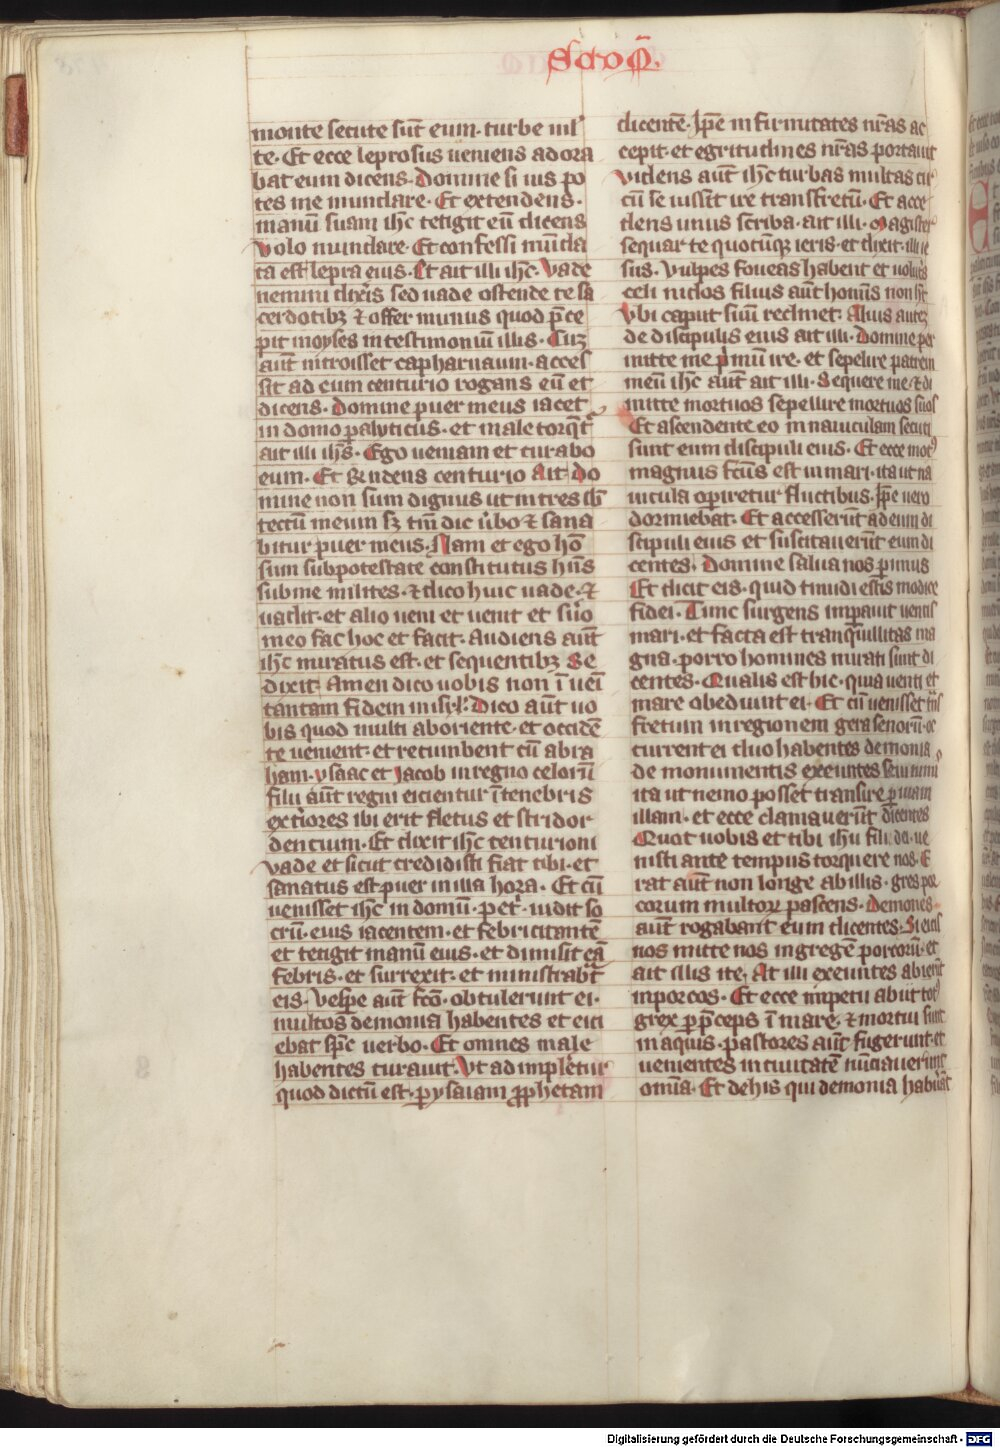 Scd̄o Q̄.
monte secute sūt eum. turbe ml
te. Et ecce leprosus ueniens adora
bat eum dicens. Domine si uis po
tes me mundare. Et extendens.
manū suam ih̄c tetigit eū dicens
volo mundare. Et confessi mūda
ta est lepra eius. Et ait illi ih̄c. Vade
nemini dixis sed uade ostende te sa
cerdotibꝫ ⁊ offer munus quod p̄ce
pit moyses in testimoniū illis. Cuꝫ
aūt introisset capharnaum. acces
sit ad eum centurio rogans eū et
dicens. Domine puer meus iacet
in domo ꝑalyticus. et male torqt̄
ait illi ih̄s. Ego ueniam et curabo
eum. Et Rn̄dens centurio Ait. Do
mine non sum dignus ut intres sb̄
tectū meum sꝫ tm̄ dic ūbo ⁊ sana
bitur puer meus. Nam et ego hō
sum sub potestate constitutus hn̄s
sub me milites. ⁊ dico huic uade. ⁊
uadit. et alio ueni et uenit et sūo
meo fac hoc et facit. Audiens aūt
ih̄c miratus est. et sequentibꝫ Se
dixit. Amen dico uobis non ī uēi
tantam fidem in isrl̄. Dico aūt uo
bis quod multi ab oriente. et occidē
te uenient. et recumbent cū abra
ham. ysaac et Jacob in regno celorū
filii aūt regni eicientur ī tenebris
exteriores ibi erit fletus et stridor
dentium. Et dixit ih̄c centurioni
vade et sicut credidisti fiat tibi. et
sanatus est puer in illa hora. Et cū
uenisset ih̄c in domū. pet̄. uidit so
crū. eius iacentem. et febricitantē
et tetigit manū eius. et dimisit eā
febris. et surrexit. et ministrabat̄
eis. Vesꝑe aūt fc̄o. obtulerunt ei.
multos demonia habentes et eici
ebat sp̄c uerbo. Et omnes male
habentes curauit. Vt adimpletur
quod dictū est. ꝑ ysaiam ꝓphetam
dicentē. Ip̄e infirmitates nr̄as ac
cepit. et egritudines nr̄as portauit
videns aūt ih̄c turbas multas cir
cū se iussit ire transfretū. Et acce
dens unus scriba. ait illi. Magister
sequar te quocūqꝫ ieris. et dixit. illi ie
sus. Vulpes foueas habent et uolucr̄s
celi nidos filius aūt hominis non ht̄
vbi caput suū reclinet. Alius auteꝫ
de discipulis eius ait illi. Domine per
mitte me p̄mū ire. et sepelire patrem
meū ih̄c aūt ait illi. Sequere me ⁊ di
mitte mortuos sepellire mortuos suos
Et ascendente eo in nauiculam secuti
sunt eum discipuli eius. Et ecce mot
magnus fc̄us est in mari. ita ut na
uicula operiretur fluctibus. Ip̄e uero
dormiebat. Et accesserūt ad eum di
scipuli eius et suscitauerūt eum di
centes. Domine salua nos ꝑimus
Et dicit eis. quid timidi estis modice
fidei. Tunc surgens imꝑauit uentis
mari. et facta est tranqillitas ma
gna. porro homines mirati sunt di
centes. Qualis est hic. quia uenti et
mare obediunt ei. Et cū uenisset tn̄s
fretum in regionem gerasenorū. oc
current ei duo habentes demonia
de monumentis exeuntes seui nimi
ita ut nemo posset transire ꝑ uiam
illam. et ecce clamauerūt dicentes
Quot uobis et tibi ihū fili dei. ue
nisti ante tempus torquere nos. E
rat aūt non longe ab illis. gres por
corum multoꝝ pascens. Demones
aūt rogabant eum dicentes. Si eicis
nos mitte nos in gregē porcorū. et
ait illis ite. At illi exeuntes abierūt
in porcos. Et ecce impetu abiit tot
grex ꝑ p̄ceps ī mare. ⁊ mortui sunt
in aquis. pastores aūt fugerunt. et
uenientes in ciuitatē nūciauerunt
omīa. Et de his qui demonia habūat
Digitalisierung gefördert durch die Deutsche Forschungsgemeinschaft - DFG